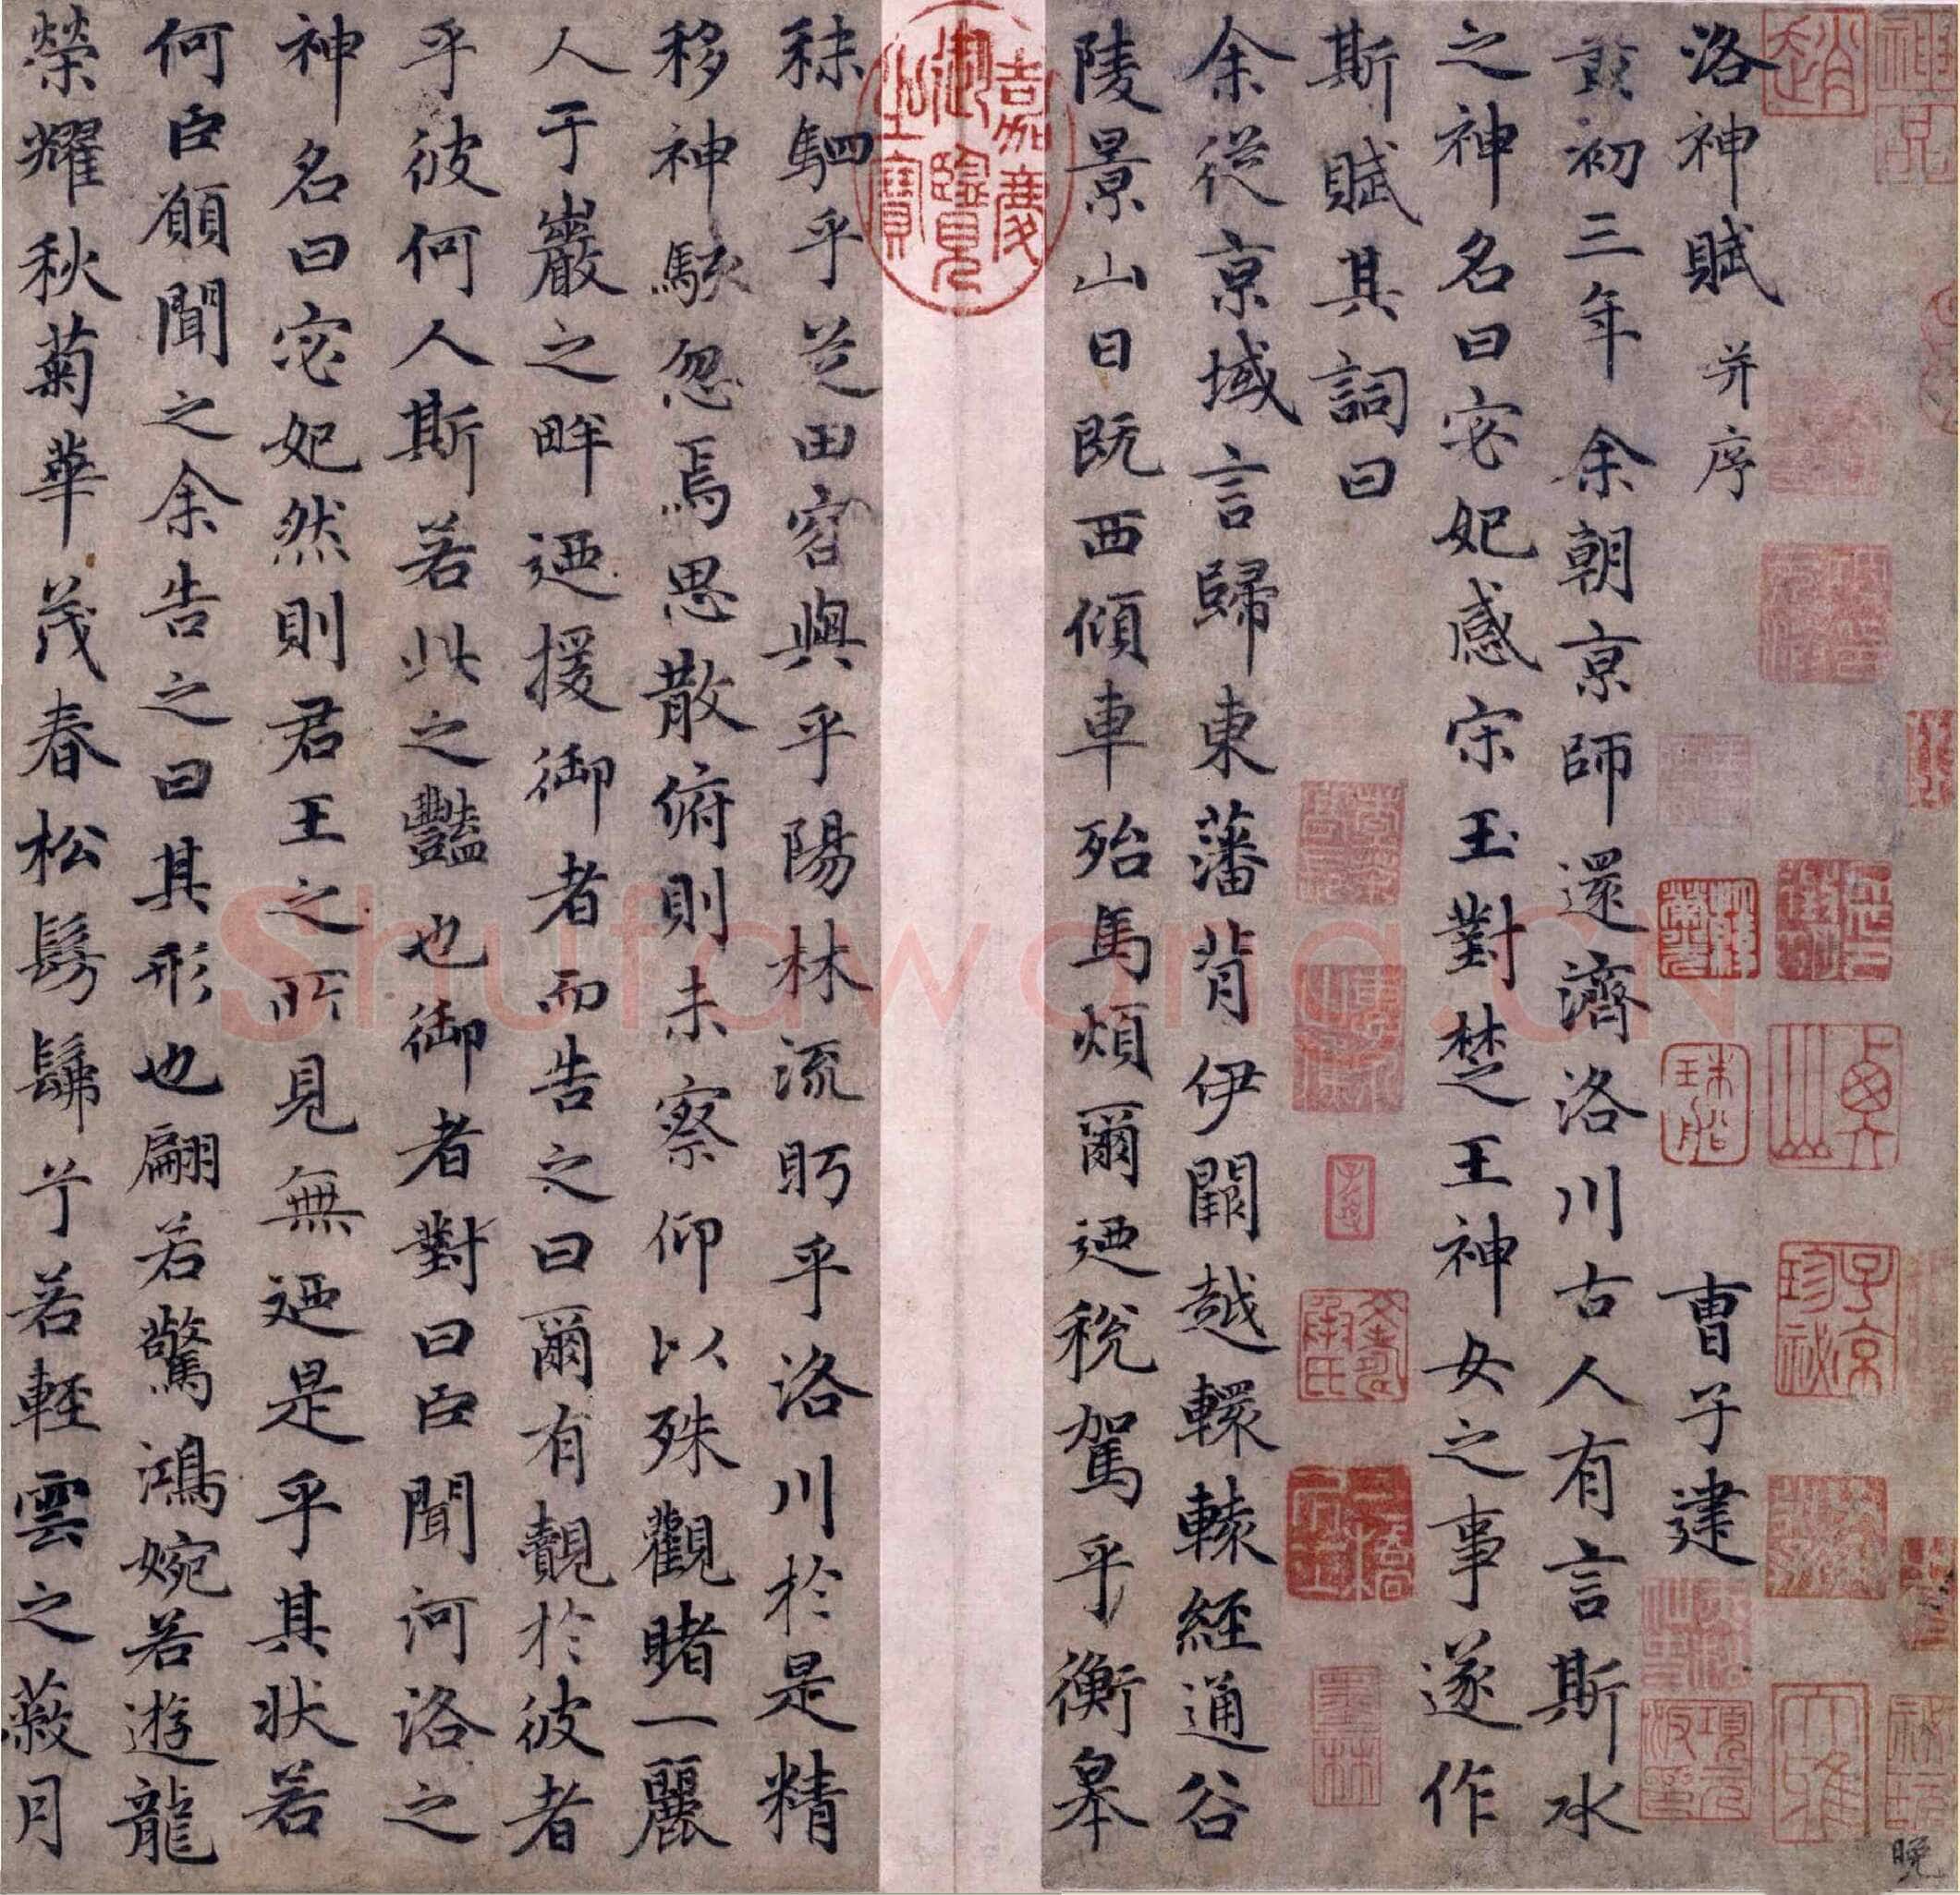 洛神賦 并序 曹子建
黃初三年余朝京師還濟洛川古人有言斯水
之神名曰宓妃感宋玉對楚王神女之事遂作
斯賦其詞曰
余從京域言歸東藩背伊闕越轘轅經通谷
陵景山日既西傾車殆馬煩爾迺稅駕乎衡皋
秣駟乎芝田容與乎陽林流眄乎洛川於是精
移神駭忽焉思散俯則未察仰以殊觀睹一麗
人于巖之畔迺援御者而告之曰爾有覿於彼者
乎彼何人斯若此之豔也御者對曰臣聞河洛之
神名曰宓妃然則君王之所見無迺是乎其狀若
何臣願聞之余告之曰其形也翩若驚鴻婉若遊龍
榮耀秋菊華茂春松髣髴兮若輕雲之蔽月
嘉慶御覽之寶
子京珍祕
項元汴印
墨林
晚
Shufawang.CN